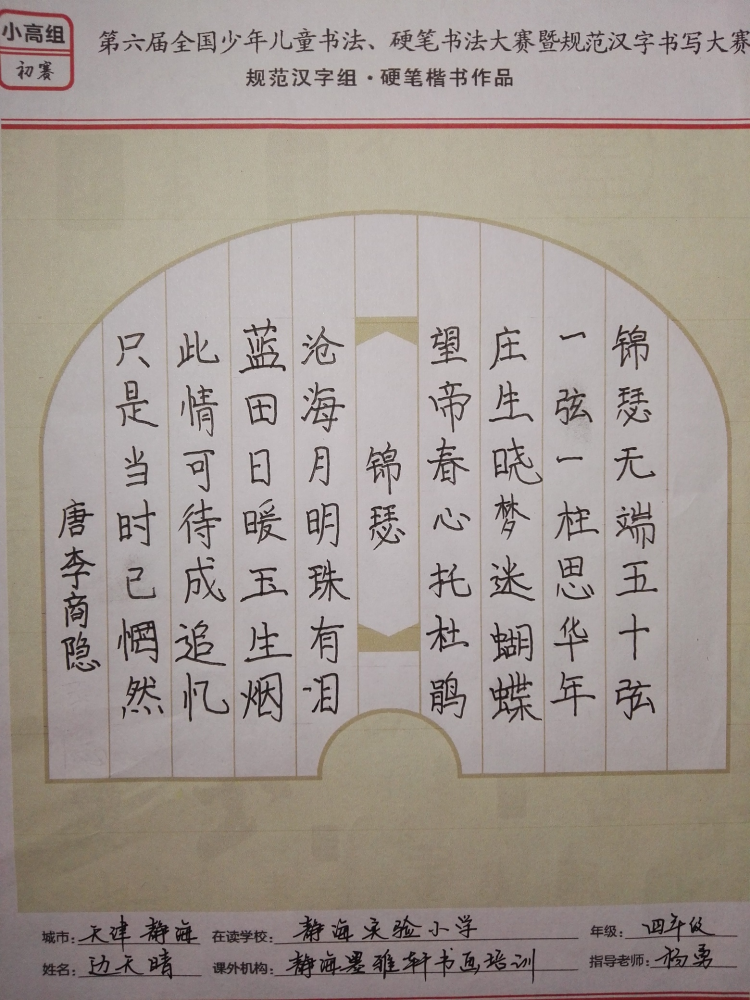 小高组
初赛
第六届全国少年儿童书法、硬笔书法大赛暨规范汉字书写大赛
规范汉字组·硬笔楷书作品
锦瑟无端五十弦
一弦一柱思华年
庄生晓梦迷蝴蝶
望帝春心托杜鹃
锦瑟
沧海月明珠有泪
蓝田日暖玉生烟
此情可待成追忆
只是当时已惘然
唐李商隐
城市：天津 静海 在读学校：静海实验小学 年级：四年级
姓名：边天晴 课外机构：静海墨雅轩书画培训 指导老师：杨勇